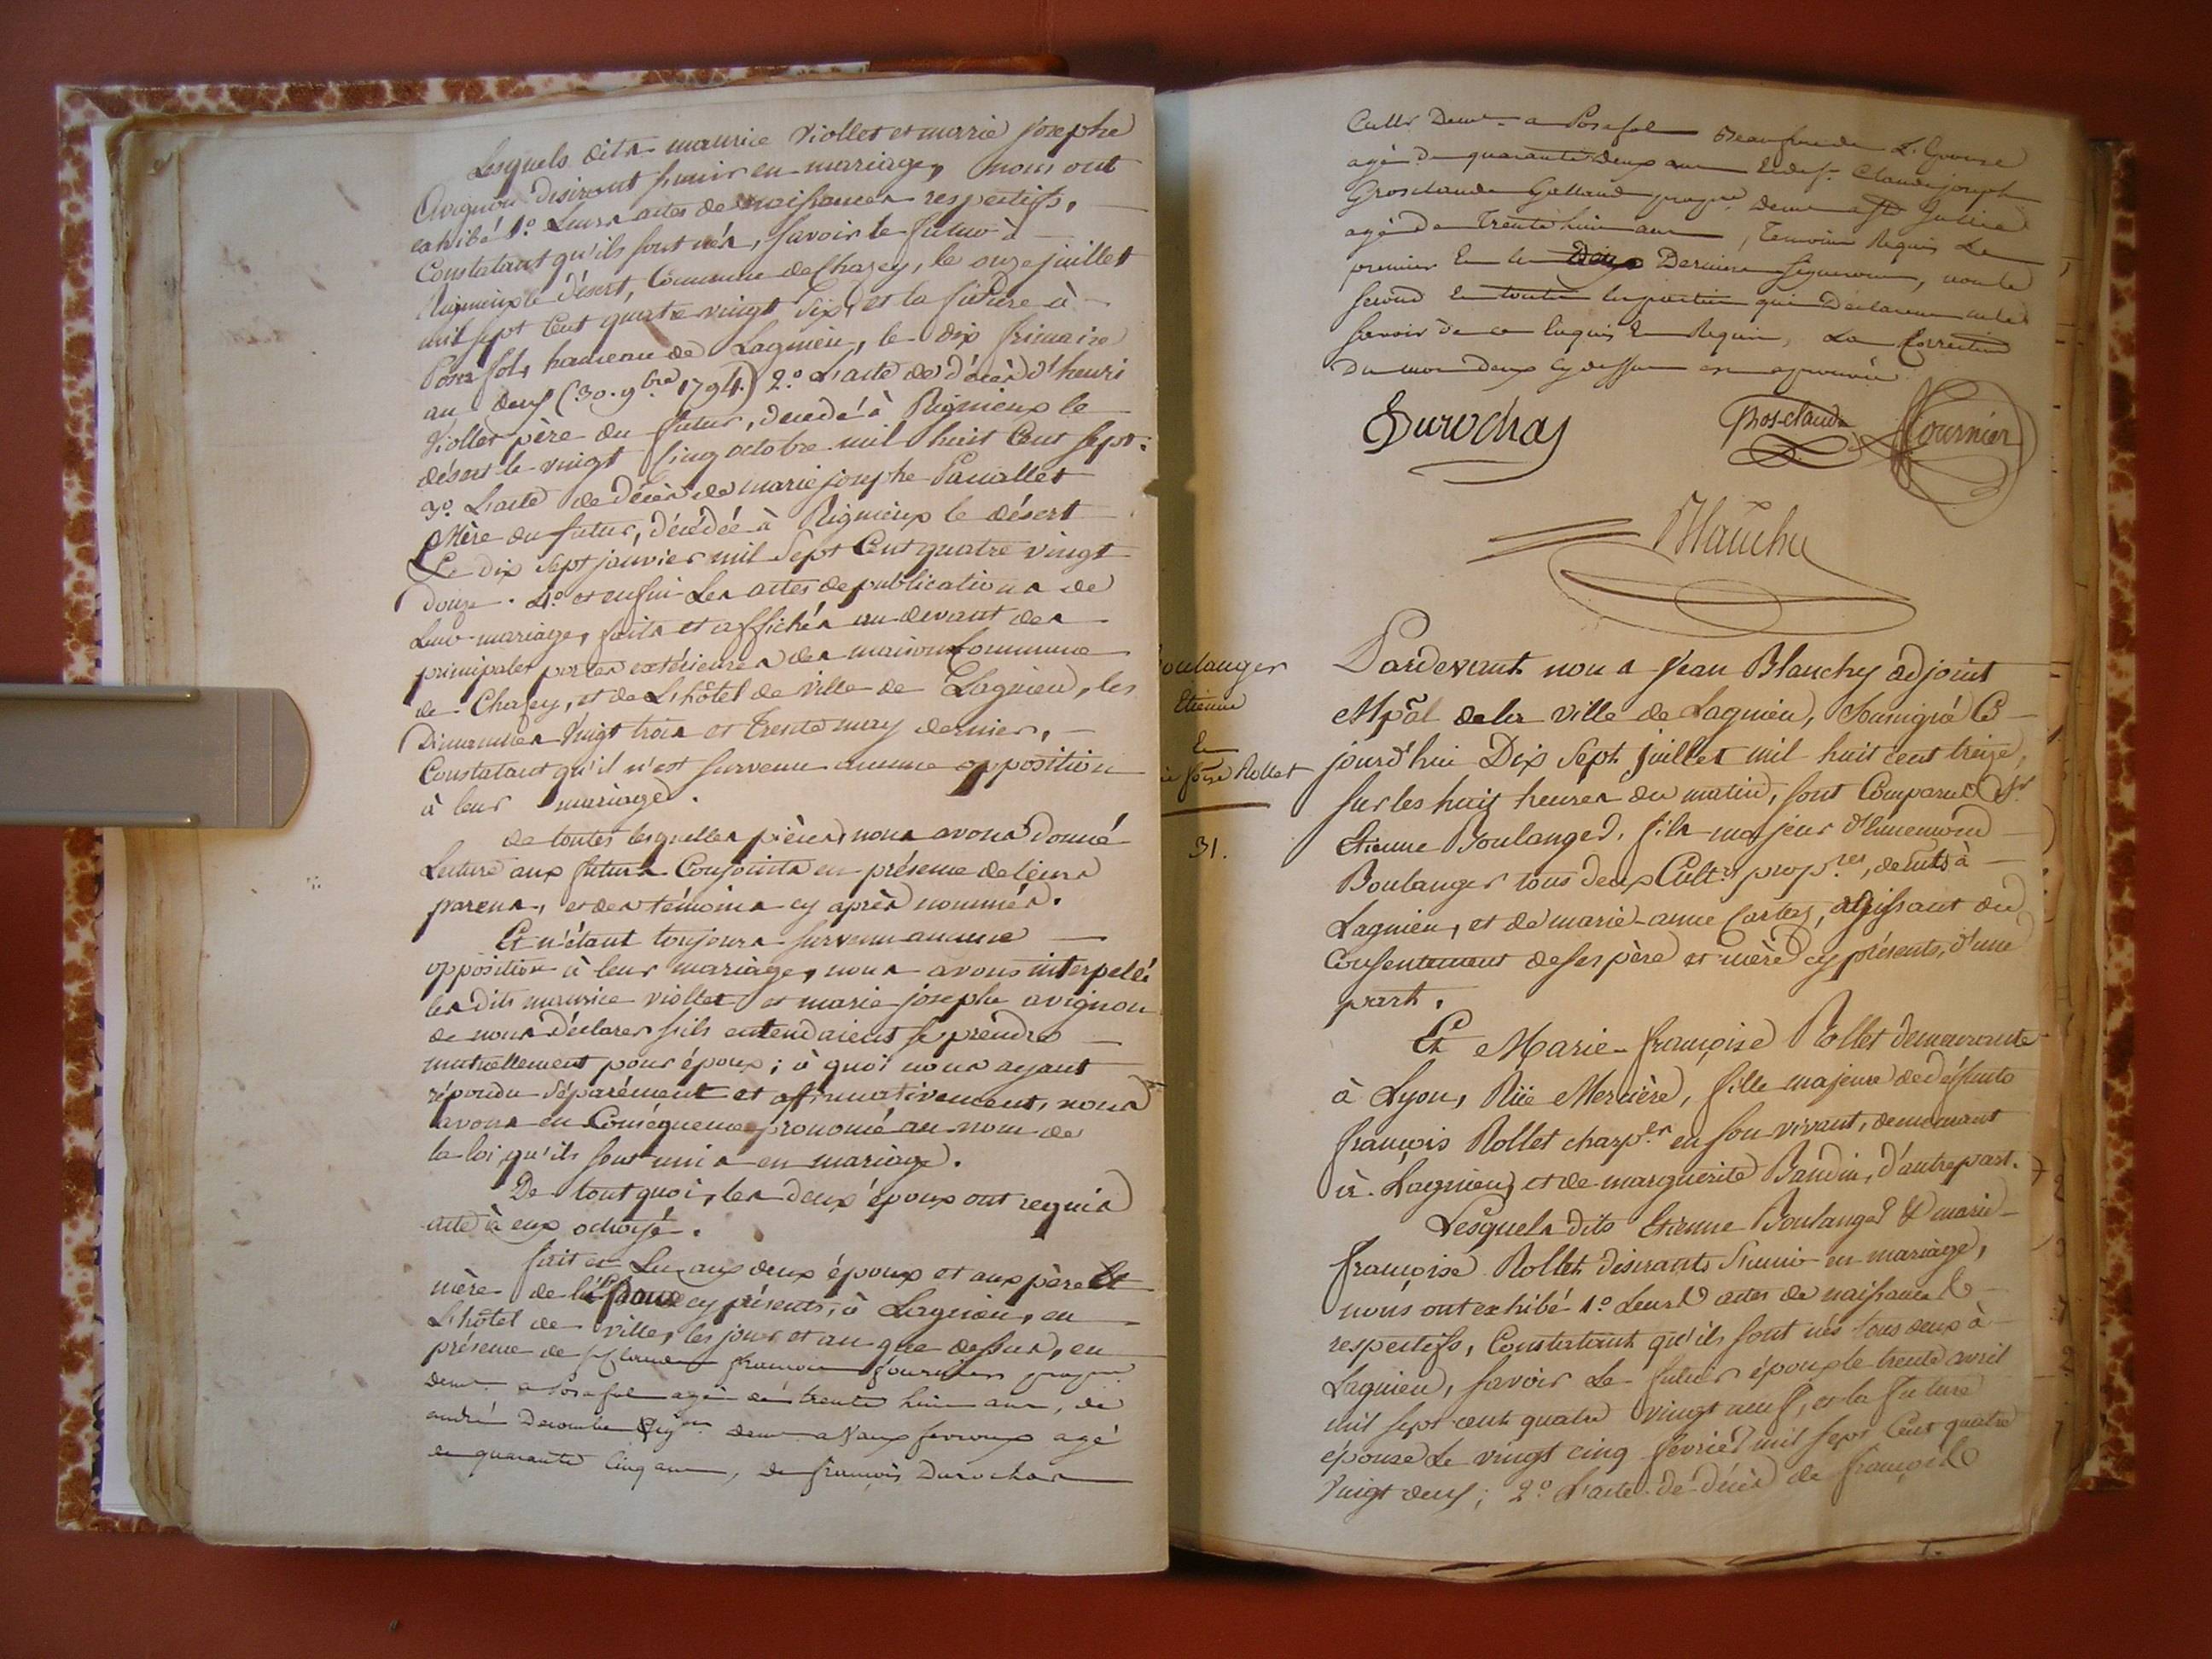 Lesquels dits maurice Viollet et marie Josephe
Avignon desirant s'unir en mariage, nous ont
exhibé 1.° Leurs actes de naissances respectifs,
Constatant qu'ils sont nés, savoir le futur à
Rignieux le désert, Commune de Chazey, le onze juillet
mil sept Cent quatre vingt Six, et la future à
Posafol, hameau de Lagnieu, le dix frimaire
an deux (30. 9.bre 1794.) 2.° L'acte de décès d'henri
Viollet père du futur, décédé à Rignieux le
désert le vingt Cinq octobre mil huit Cent sept.
3.° L'acte de décès de marie josephe
Mère du futur, décédée à Rignieux le désert
Le dix sept janvier mil Sept Cent quatre vingt
douze. 4.° et enfin Les actes de publications de
Leur mariage, faits et affichés au devant des
principales portes extérieures des maison Commune
de Chazey, et de L'hôtel de Ville de Lagnieu, les
Dimanches Vingt trois et trente may dernier,
Constatant qu'il n'est survenu aucune opposition
à leur mariage.
de toutes lesquelles pièces, nous avons donné
Lecture aux futurs Conjoints en présence de leurs
parens, et des témoins cy après nommés.
Et n'étant toujours survenu aucune
opposition à leur mariage, nous avons interpellé
les dits maurice viollet et marie josephe avignon
de nous déclarer s'ils entendaient se prendre
mutuellement pour époux; à quoi nous ayant
répondu séparément et affirmativement, nous
avons en Conséquence prononcé au nom de
la loi, qu'ils sont unis en mariage.
De tout quoi, les deux époux ont requis
acte à eux octroyé.
fait et Lu aux deux époux et aux père Et
mère de l'Epouse cy présents, à Lagnieu, en
L'hôtel de Ville, les jour et an que dessus, en
présence de Sr Claude françois fournier propre.
demt. a Posafol agé de trente huit ans, de
andré demt. a Vaux fevroux agé
de quarante Cinq ans, de françois Durochas
Cultr. Demt. a Posafol Beaufrere de L'Epouse
agé de quarante deux ans Et de Sr. Claude joseph
Grosclaude Galland propre. Demt a St Julie
agé de Trente huit ans, Temoins Requis Le
premier Et les Deux Derniers signeront, non le
second Et toutes les parties qui Declarent ne le
savoir de ce Enquis Et Requis, La Correction
du mot deux cy dessus est aprouvée
Durochas
Grosclaude
Fournier
Blanchy
oulanger
Etienne
Et
çoise Rollet
31.
Pardevant nous Jean Blanchy adjoint
Mpāl de la Ville de Lagnieu, Soussigné Ce
jourd'hui Dix Sept juillet mil huit cent treize,
sur les huit heures du matin, sont Comparus Sr.
Etienne Boulanger, fils majeur d'himemond
Boulanger tous deux Cult.rs prop.res, demts à
Lagnieu, et de marie anne Cartas, agissant du
Consentement de ses père et mère cy présents, d'une
part,
Et Marie françoise Rollet demeurante
à Lyon, Rüe Mercière, fille majeure de deffunts
françois Rollet charp.er en son vivant, demeurant
à Lagnieu, et de marguerite Baudin, d'autre part.
Lesquels dits Etienne Boulanger & marie
françoise Rollet desirants S'unir en mariage,
nous ont exhibé 1.° Leurs actes de naissances
respectifs, Constatant qu'ils sont nés tous deux à
Lagnieu, savoir Le futur époux le trente avril
mil sept cent quatre vingt neuf, et la future
épouse Le vingt cinq fevrier mil sept Cent quatre
Vingt deux; 2.° L'acte de décès de françois